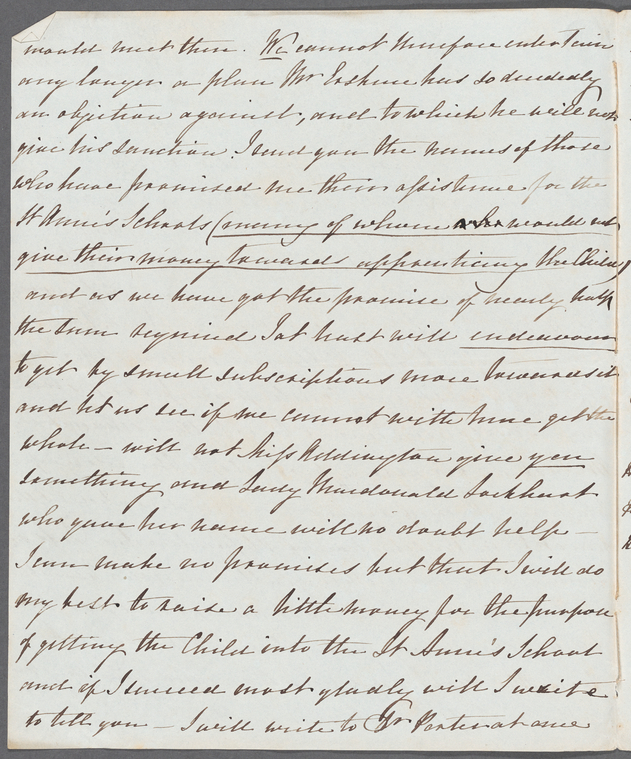 would meet them. We cannot therefore entertain
any longer a plan Mr Erskine has so decidedly
an objection against, and to which he will not
give his sanction. I send you the names of those
who have promised me their assistance for the
St Anne's Schools (many of whom would not
give their money towards apprenticing the Child)
and as we have got the promise of nearly half
the sum required I at least will endeavour
to get by small subscriptions more towards it
and let us see if we cannot with time get the
whole — will not Miss Addington give you
something and Lady Macdonald Lockhart
who gave her name will no doubt help —
I can make no promises but that I will do
my best to raise a little money for the purpose
of getting the Child into the St Anne's School
and if I succeed most gladly will I write
to tell you — I will write to Dr Porter at once